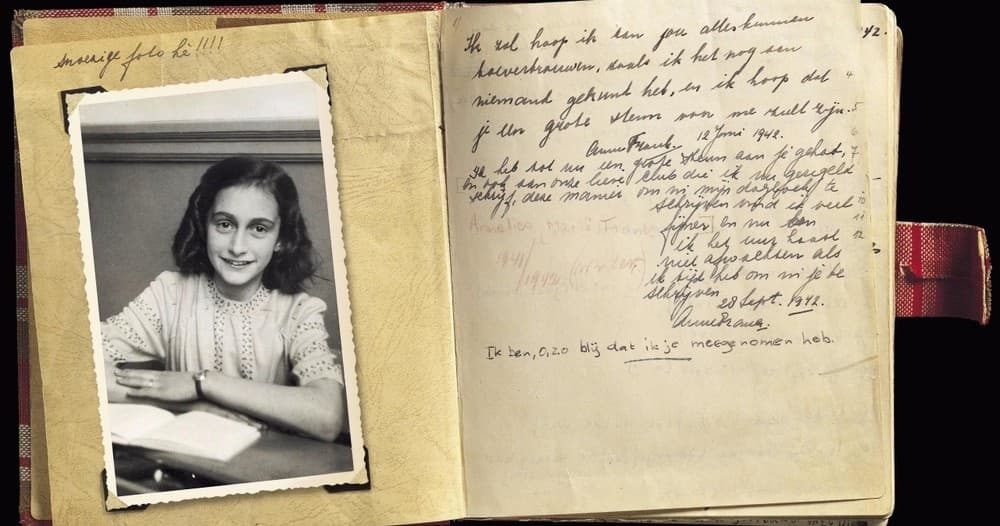 snoezige foto hè!!!!
42.
Ik zal hoop ik aan jou alles kunnen
toevertrouwen, zoals ik het nog aan
niemand gekunt heb, en ik hoop dat
je een grote steun van me zult zijn.
Anne Frank. 12 Juni 1942.
Ik heb tot nu een grote steun aan je gehad,
en ook aan onze lieve club die ik nu geregeld
schrijf, deze manier om in mijn dagboek te
schrijven vind ik veel
fijner en nu kan
ik het uur haast
niet afwachten als
ik tijd heb om in je te
schrijven
28 Sept. 1942.
Anne Frank.
Ik ben, o, zo blij dat ik je meegenomen heb.